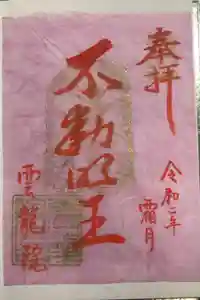 奉拝
令和二年
霜月
不動明王
雲龍院